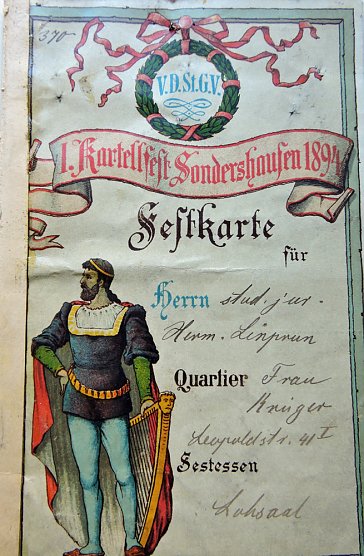 370
V.D.St.G.V.
I. Kartellfest Sondershausen 1894
Festkarte
für
Herrn stud. jur.
Herm. Linprun
Quartier Frau
Krüger
Leopoldstr. 41 I
Festessen
Lohsaal